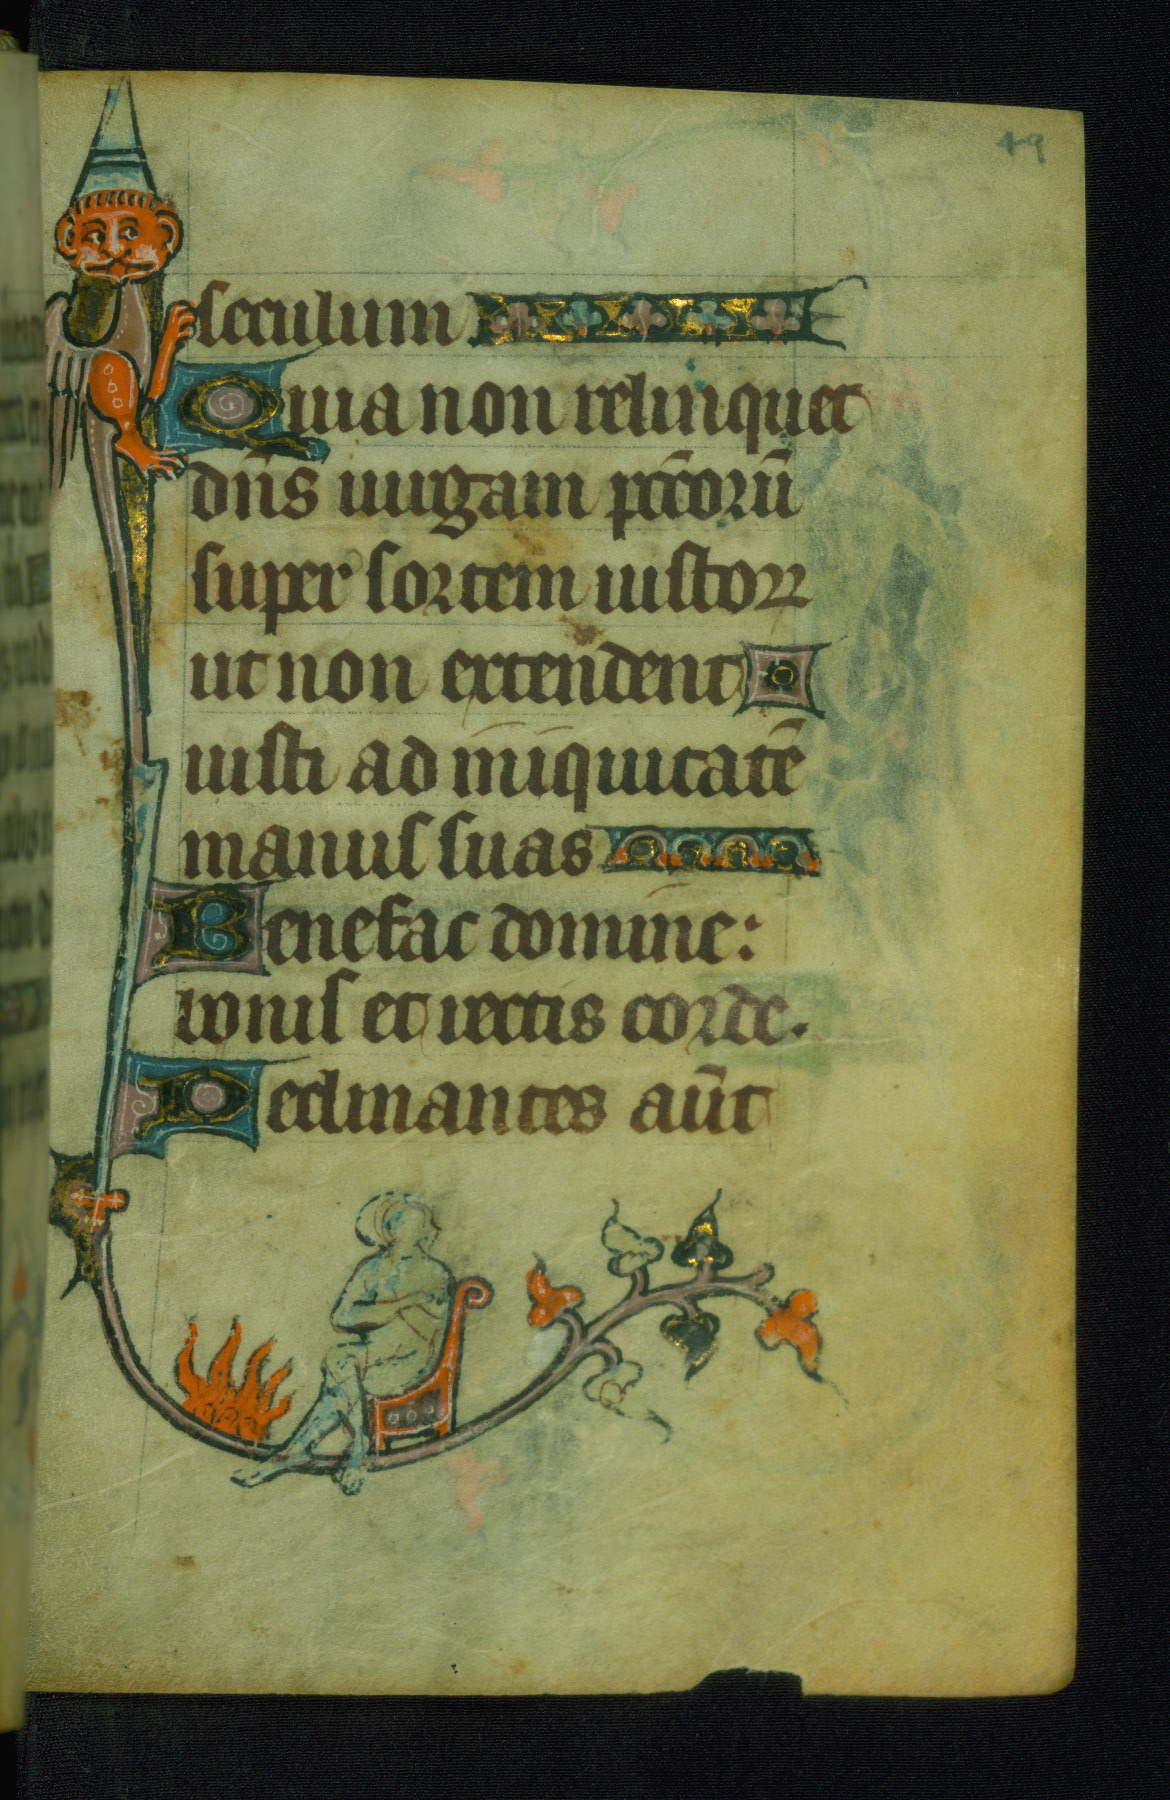 49
seculum
Quia non relinquet
dñs uirgam pccorū
super sortem iustoꝝ
ut non extendent
iusti ad iniquitatē
manus suas
Benefac domine:
bonis et rectis corde.
Declinantes aūt